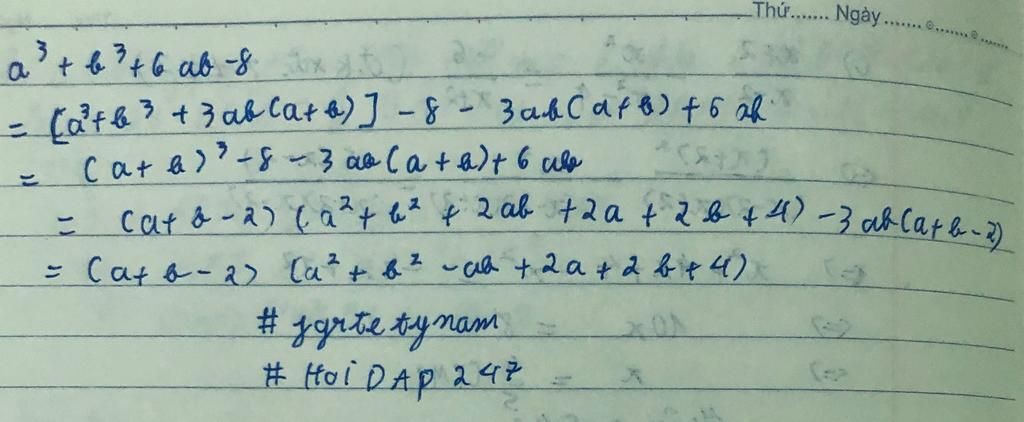 Thứ....... Ngày.......
a³ + b³ + 6ab - 8
= [a³ + b³ + 3ab(a+b)] - 8 - 3ab(a+b) + 6ab
= (a+b)³ - 8 - 3ab(a+b) + 6ab
= (a+b-2)(a² + b² + 2ab + 2a + 2b + 4) - 3ab(a+b-2)
= (a+b-2)(a² + b² - ab + 2a + 2b + 4)
# Hoi DAP 247